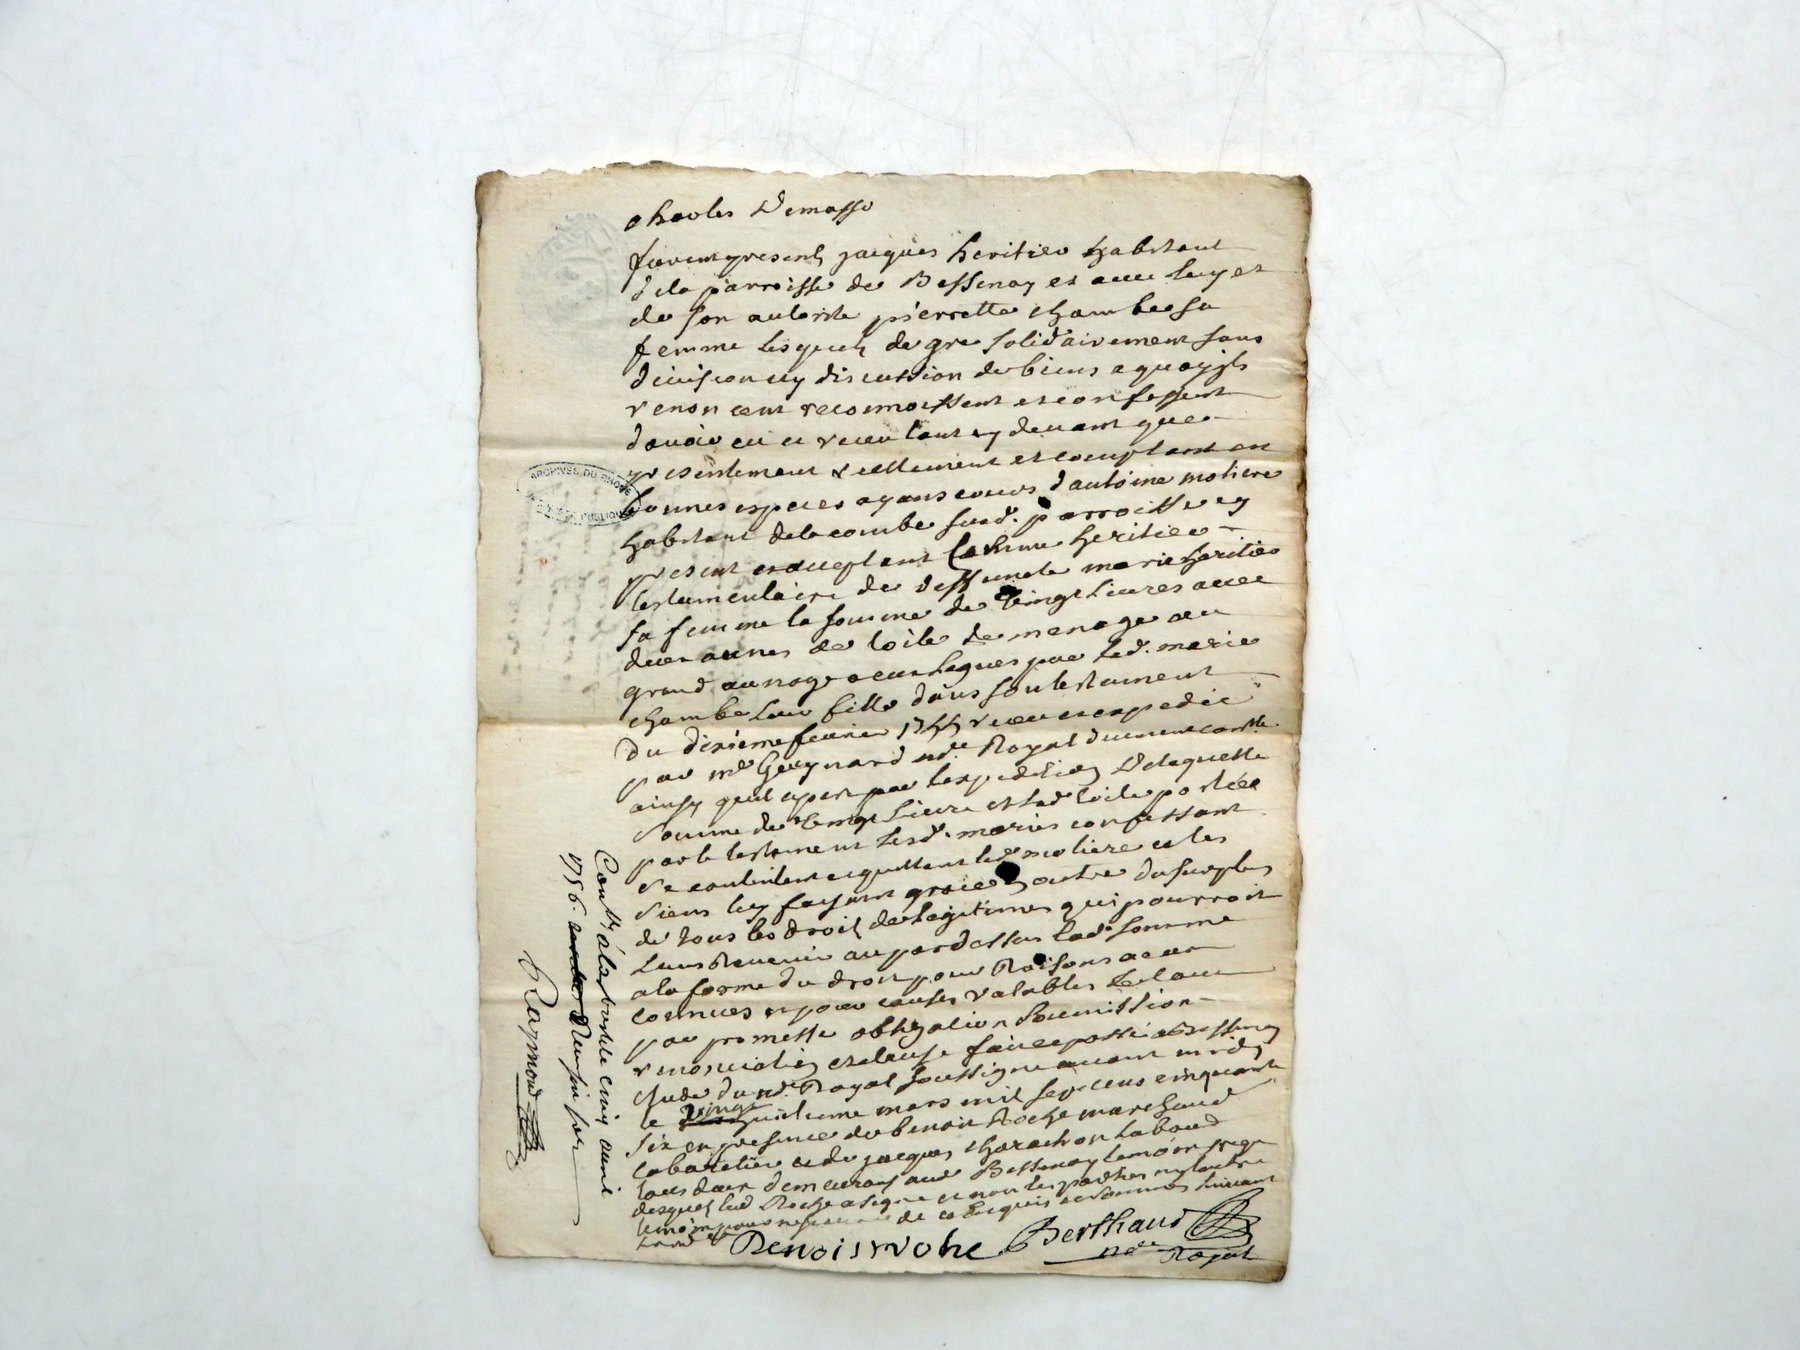 Charles Demasso
furent presents jacques heritier habitant
dela parroisse de Bessenay et avec luy et
de son autorite pierrette chambe sa
femme lesquels de gre solidairement sans
division ny discussion de biens a quoy ils
renoncent reconnoissent et confessent
d'avoir eu et receu tant cy devant que
presentement reellement et comptant en
bonnes especes ayans cours d'antoine moliere
habitant dela combe susd. parroisse cy
present et acceptant comme heritier
testamentaire de deffuncte marie heritier
sa femme la somme de vingt livres avec
deux aunes de toile de menage au
grand aunage a eux legues par lad. marie
chambe leur fille dans son testament
du dixieme fevrier 1755 receu et expedié
par me Guygnard nore Royal duement conllé
ainsy quil apert par l'expedition de laquelle
somme de vingt livres et lad toile portée
par le testament lesd. mariés confessant
se contentent et quittent led moliere et les
siens luy faisant grace en outre du surplus
de tous les droits de legitimes qui pourroit
leurs Revenir au pardessus lad. somme
a la forme du droit pour Raisons a eux
connues et pour causes valables
par promesse obligation soumission
renonciation et clause fait et passé a Bessenay
etude du no.re Royal soussigné avant midy
le vingt huitieme mars mil sept cens cinquante
six en presence de benoit Roche marchand
cabaretier et de jacques charachon
tous deux demeurans aud Bessenay temoins requis
desquels led Roche a signé et non les parties ny l'autre
temoin pour ne sçavoir de ce enquis et sommés suivant
Benoist roche Berthaud
nore Royal
Conllé à larbresle cinq avril
1756. Reçu six sols
Raymond
ARCHIVES DU RHONE